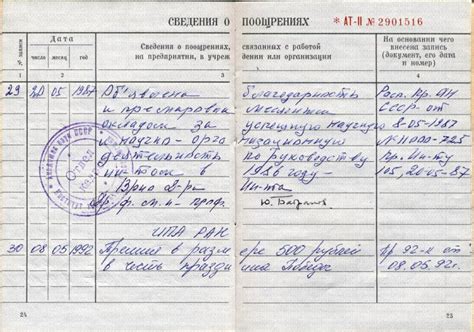 СВЕДЕНИЯ О ПООЩРЕНИЯХ
* АТ-II № 2901516
№ записи
Дата
число месяц год
Сведения о поощрениях, связанных с работой
на предприятии, в учреждении или организации
На основании чего внесена запись (документ, его дата и номер)
1 2 3 4
29 20 05 1987 Объявлена благодарность Расп. Пр. АН
и премирован месячным СССР от
окладом за успешную научную 8-05-1987
и научно-орга низационную N 11000-725
деятельность по руководству Пр. Ин-ту
ин-том в 1986 году- 105, 20.05-87
Врио д-ра Ин-та
Отдел кадров
ИПА РАН
30 08 05 1992 Премия в разм ере 500 рублей Пр 92-к от
в честь празд ника Победы 08.05.92г.
24
25